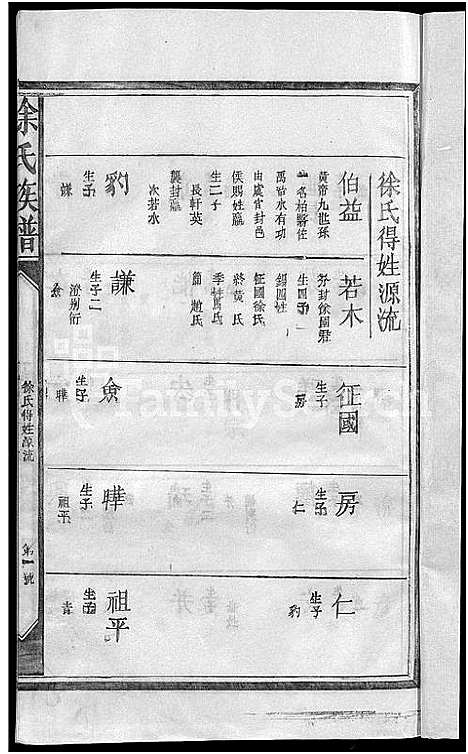 徐氏得姓源流
伯益
黃帝九世孫
一名柏翳佐
禹治水有功
由虞官封邑
侯賜姓嬴
生二子
長軒英
襲封嬴
次若水
若木
分封徐國君
生四子
錫四姓
征國徐氏
終黃氏
季封馬氏
節趙氏
征國
生子
房
房
生子
仁
仁
生子
豹
豹
生子
謙
謙
生子二
澄別衍
㑒
㑒
生子
曄
曄
生子
祖平
祖平
生子
徐氏族譜
徐氏得姓源流
第一號
FamilySearch